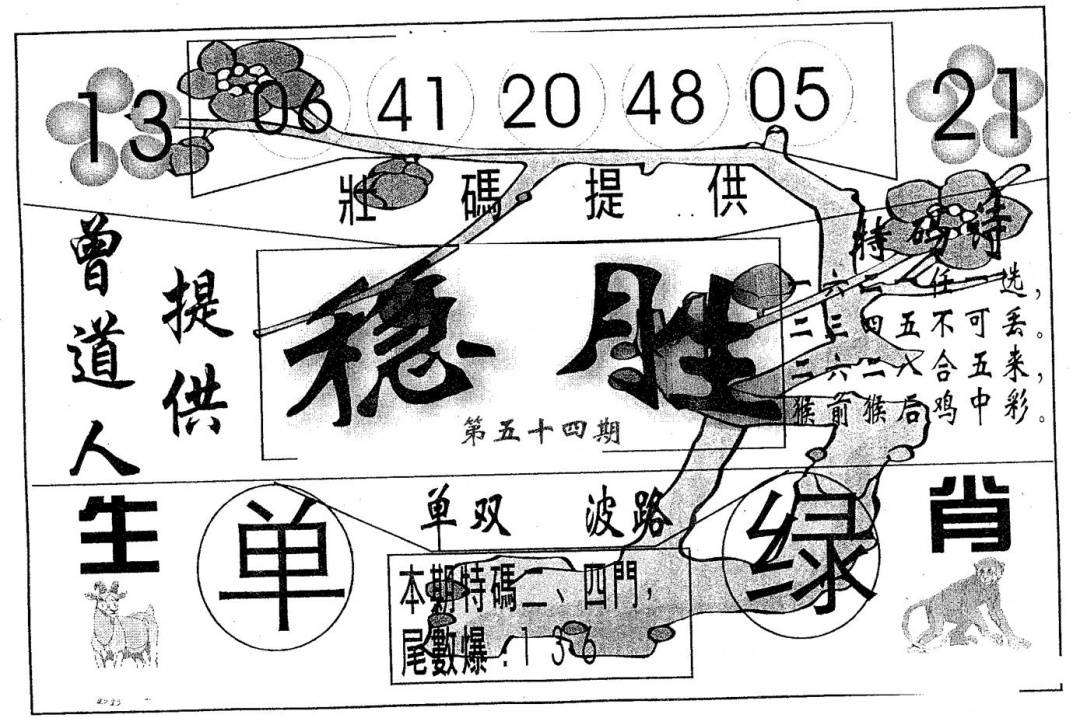 13 06 41 20 48 05 21
壯碼提供
曾道人
提供
稳胜
第五十四期
特码诗
一六二一任一选，
二三四五不可丢。
二六二八合五来，
猴前猴后鸡中彩。
生肖
单
单双 波路
绿
本期特碼二、四門，
尾數爆:136